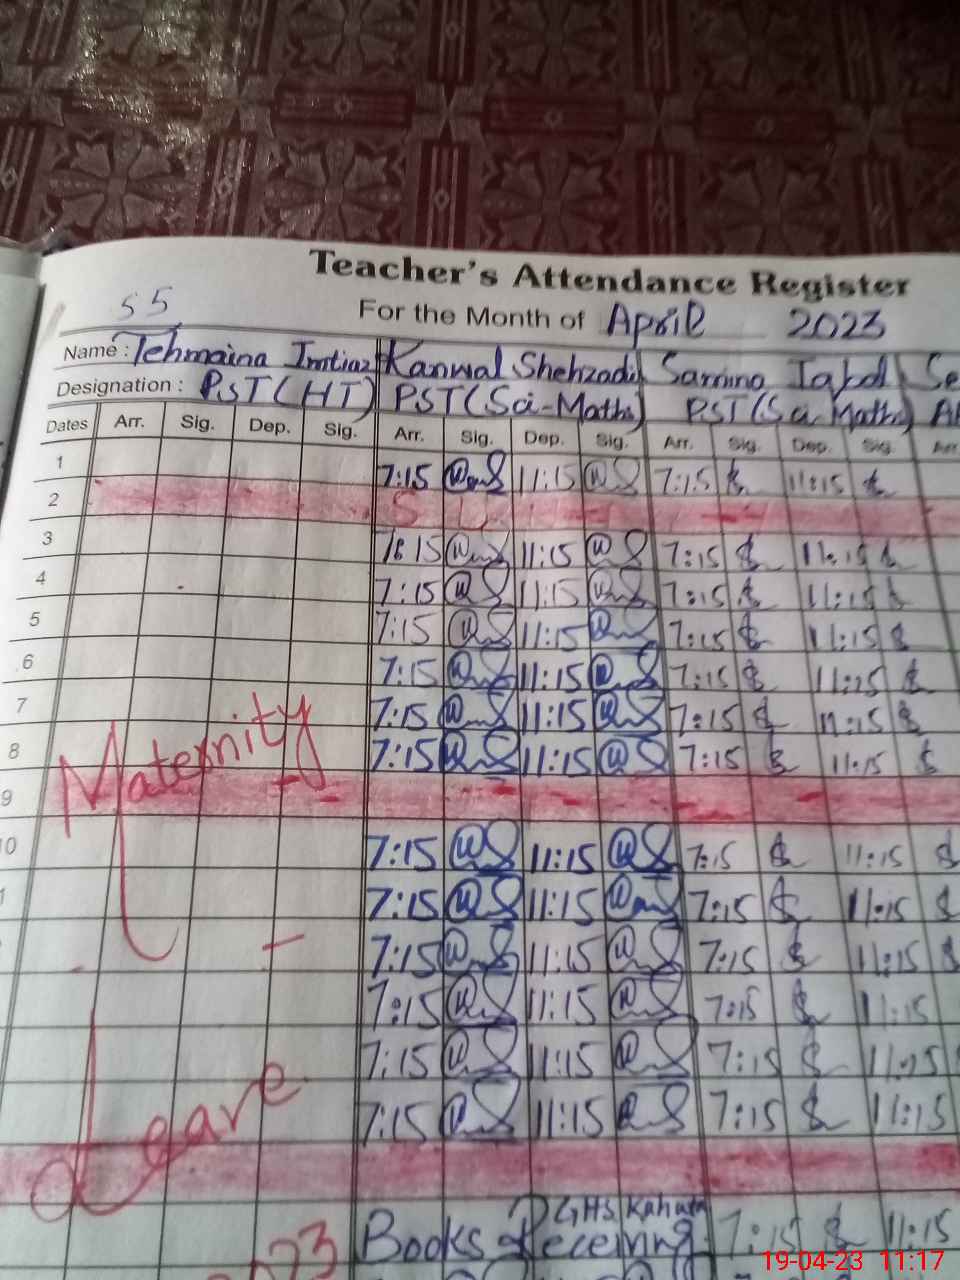 Teacher's Attendance Register
55
For the Month of April 2023
Name : Tehmaina Imtiaz Kanwal Shehzadi Samina Iqbal Se
Designation : PST(HT) PST(Sci-Maths) PST(Sci Maths)
Dates Arr. Sig. Dep. Sig. Arr. Sig. Dep. Sig. Arr. Sig. Dep. Sig. Arr.
1 7:15 11:15 7:15 11:15
2 S U
3 7:15 11:15 7:15 11:15
4 7:15 11:15 7:15 11:15
5 7:15 11:15 7:15 11:15
6 7:15 11:15 7:15 11:15
7 7:15 11:15 7:15 11:15
8 7:15 11:15 7:15 11:15
Maternity
9
10 7:15 11:15 7:15 11:15
7:15 11:15 7:15 11:15
7:15 11:15 7:15 11:15
7:15 11:15 7:15 11:15
7:15 11:15 7:15 11:15
7:15 11:15 7:15 11:15
Leave
GHS Kahuta
Books Receiving 7:15 11:15
19-04-23 11:17